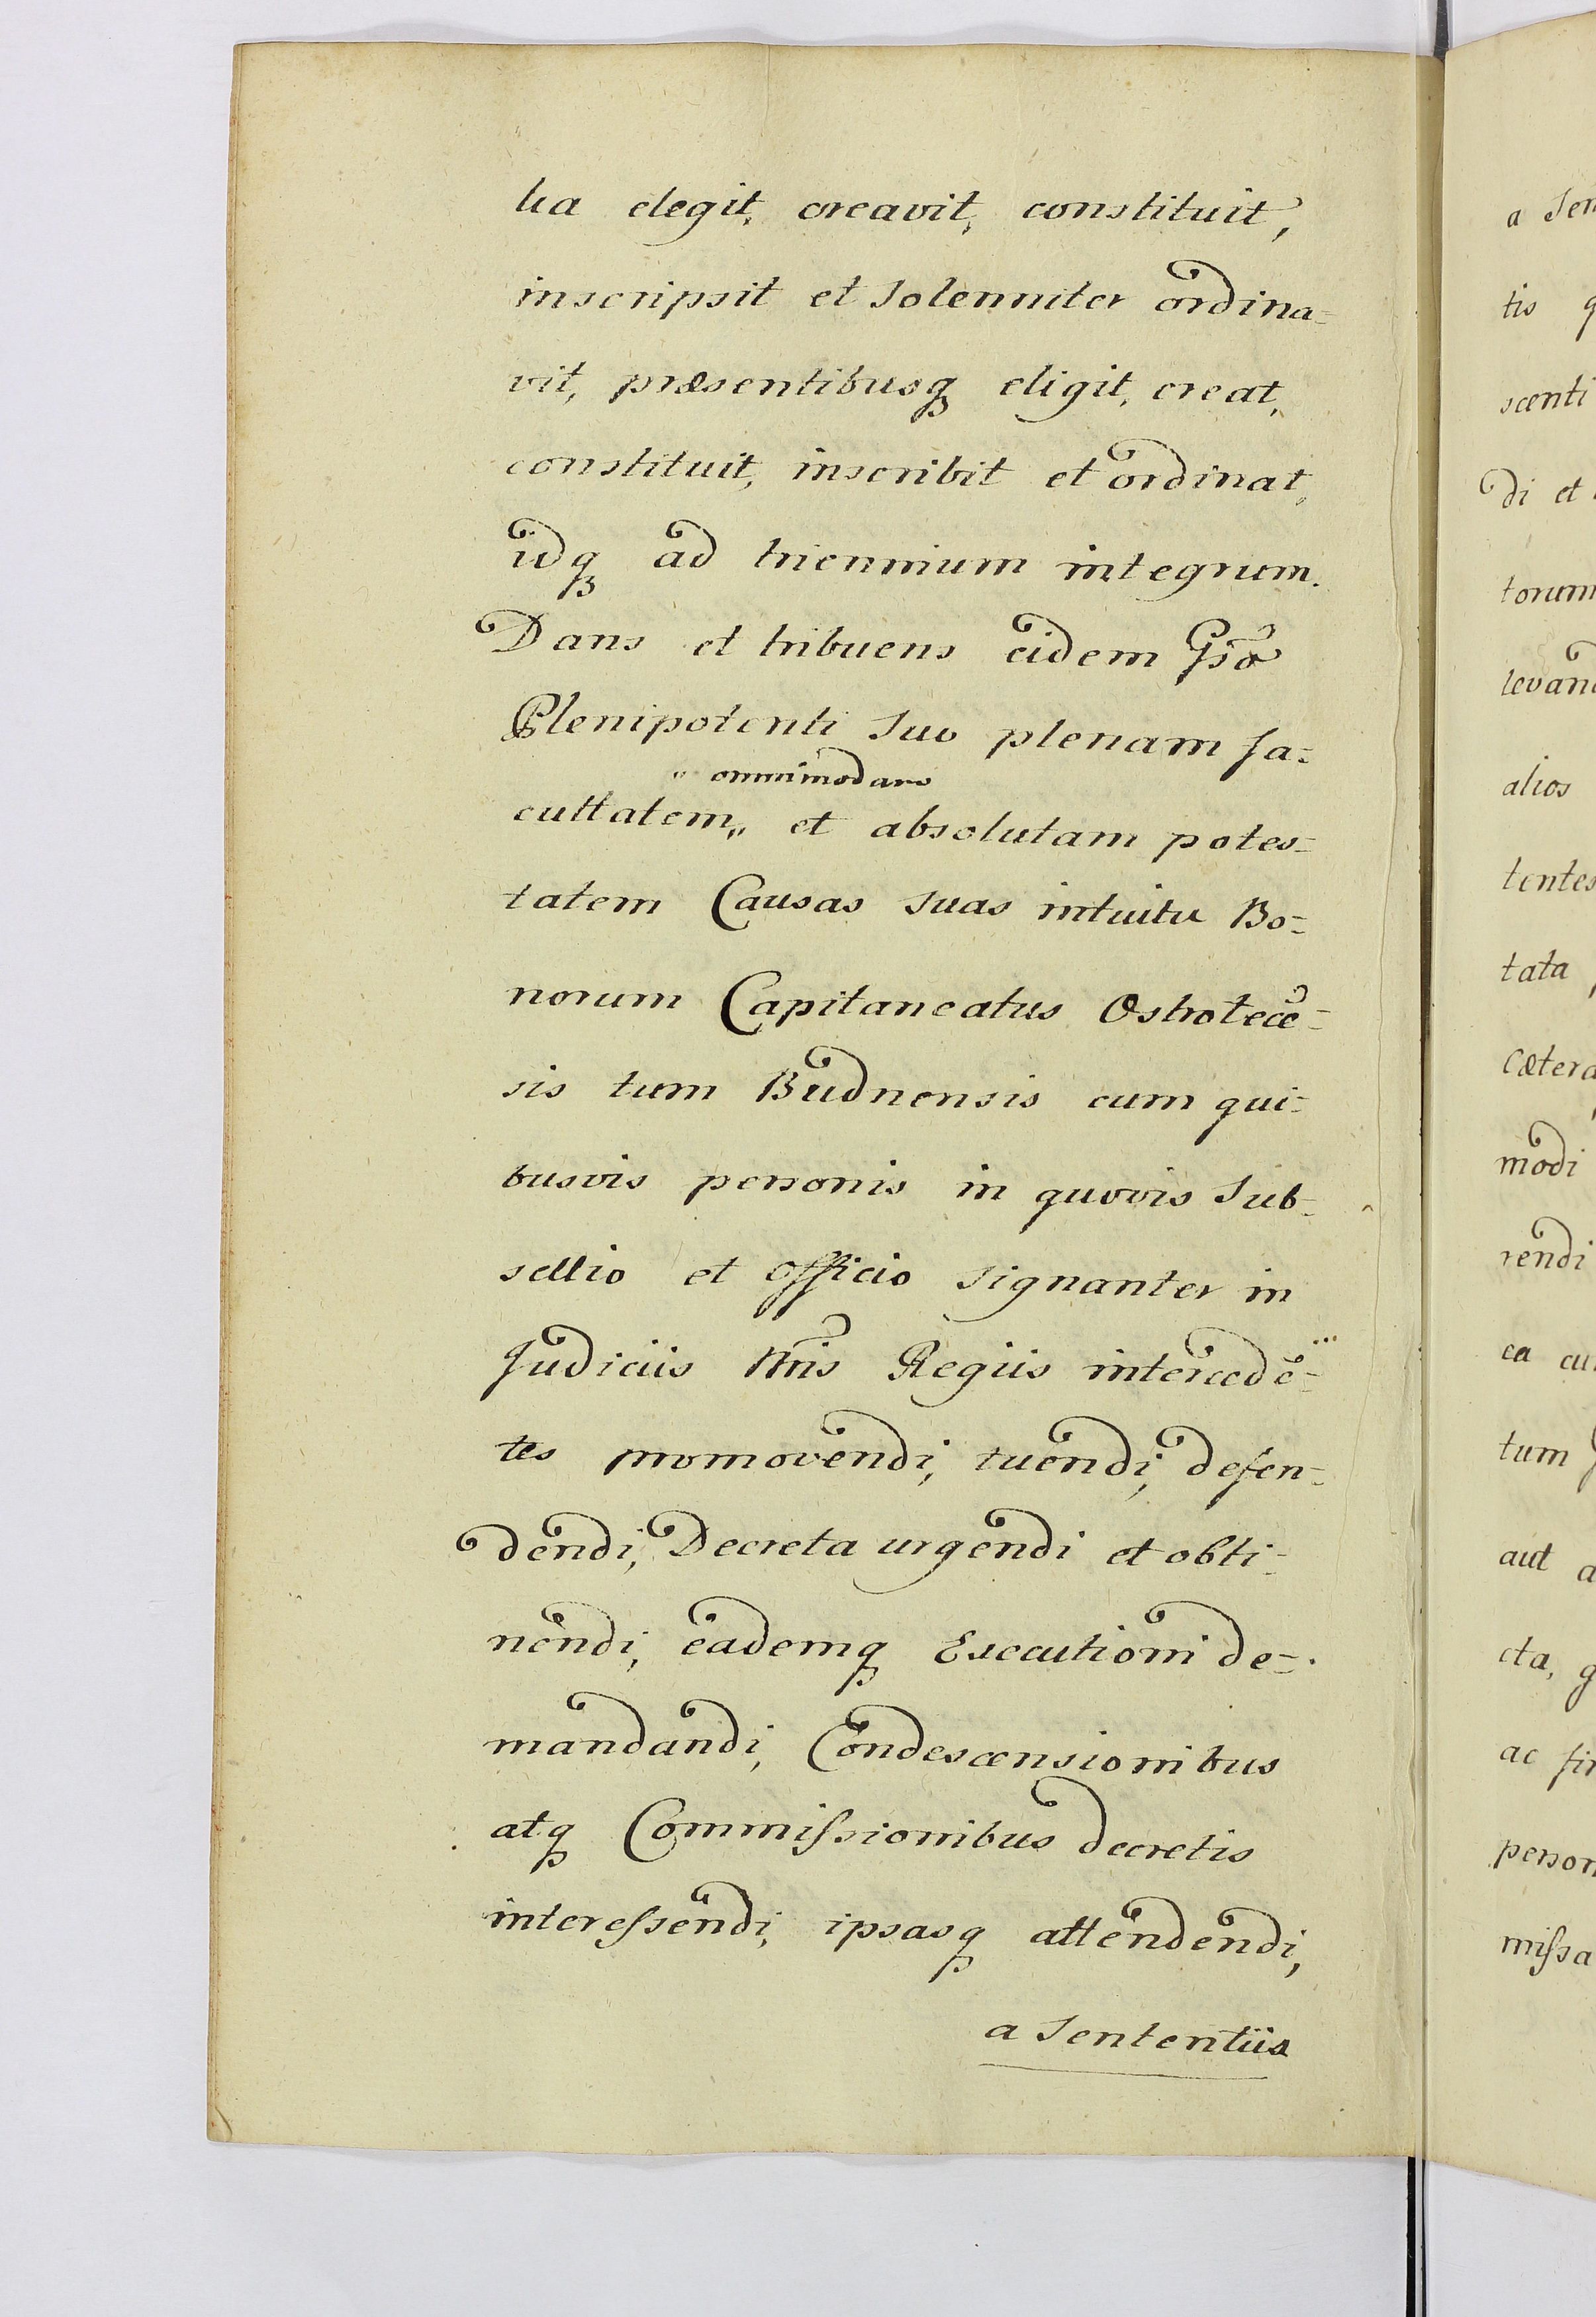 lia elegit, creavit, constituit,
inscripsit et Solenniter ordina=
vit, præsentibusq́ꝫ eligit, creat,
constituit, inscribit et ordinat,
idqꝫ ad triennium integrum.
Dans et tribuens eidem Gso
Plenipotenti Suo plenam fa=
„ omnimodam
cultatem„ et absolutam potes=
tatem Causas suas intuitu Bo=
norum Capitaneatus Ostrotecē=
sis tum Budnensis cum qui=
busvis personis in quovis Sub=
sellio et officio signanter in
Judiciis Nris Regiis intercedē=
tes promovendi, tuendi, defen=
dendi, Decreta urgendi et obti=
nendi, eademqꝫ Executioni de=
mandandi, Condescensionibus
atqꝫ Commiſsionibus decretis
intereſsendi, ipsasqꝫ attendendi,
a Sententiis
a Sen
tis q
scenti
di et
torum
levan
alios
tentes
tata
Cætera
modi
rendi
ea cu
tum
aut a
cta, g
ac fir
person
miſsa